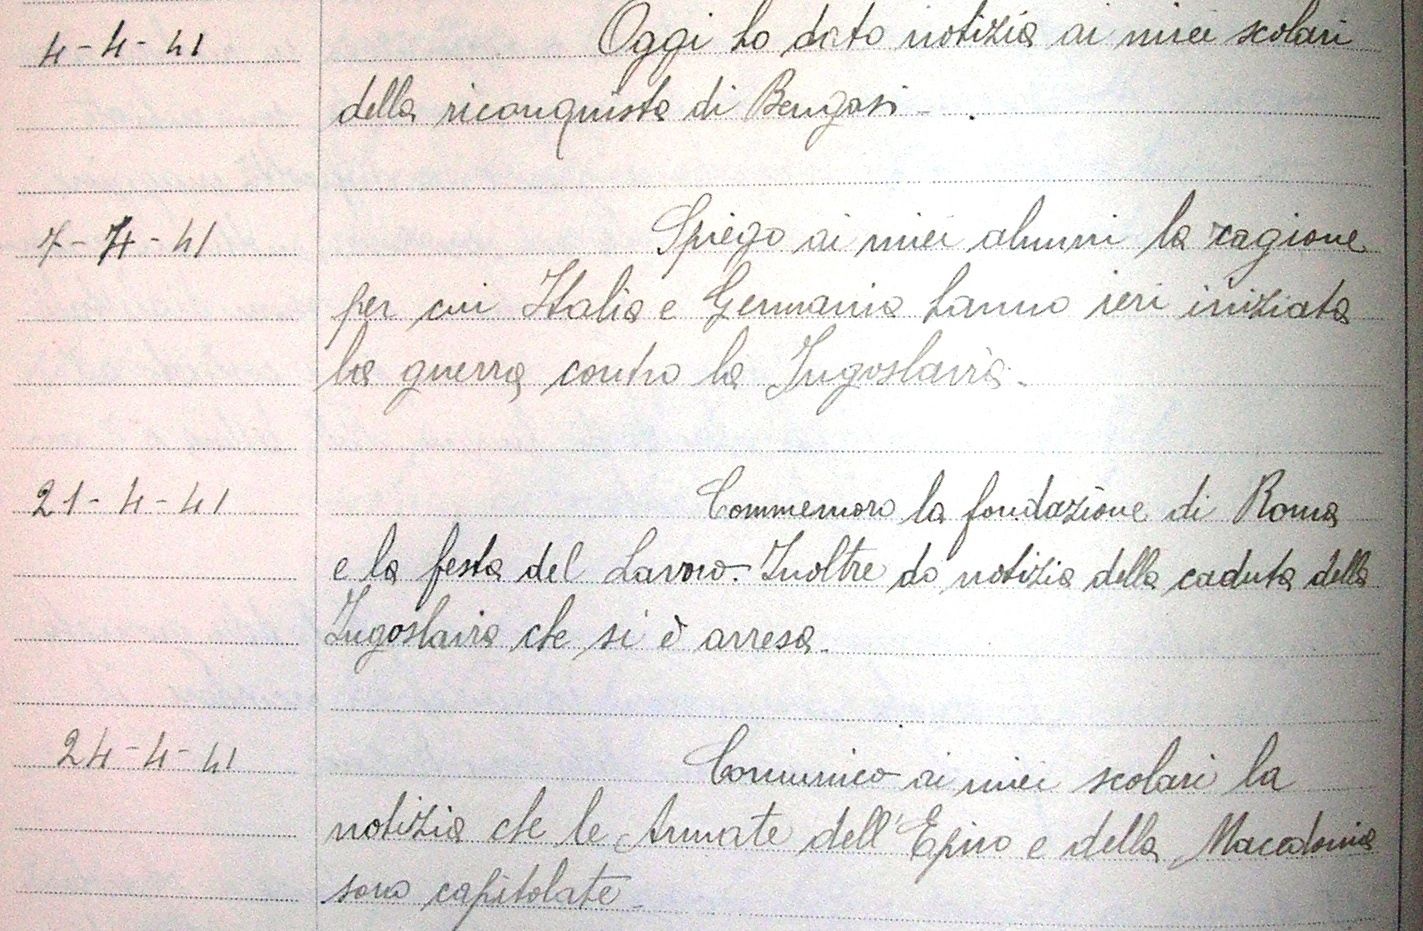 4-4-41 Oggi ho dato notizia ai miei scolari
della riconquista di Bengasi.
7-4-41 Spiego ai miei alunni la cagione
per cui Italia e Germania hanno ieri iniziata
la guerra contro la Jugoslavia.
21-4-41 Commemoro la fondazione di Roma
e la festa del Lavoro. Inoltre do notizia della caduta della
Jugoslavia che si è arresa.
24-4-41 Comunico ai miei scolari la
notizia che le Armate dell'Epiro e della Macedonia
sono capitolate.